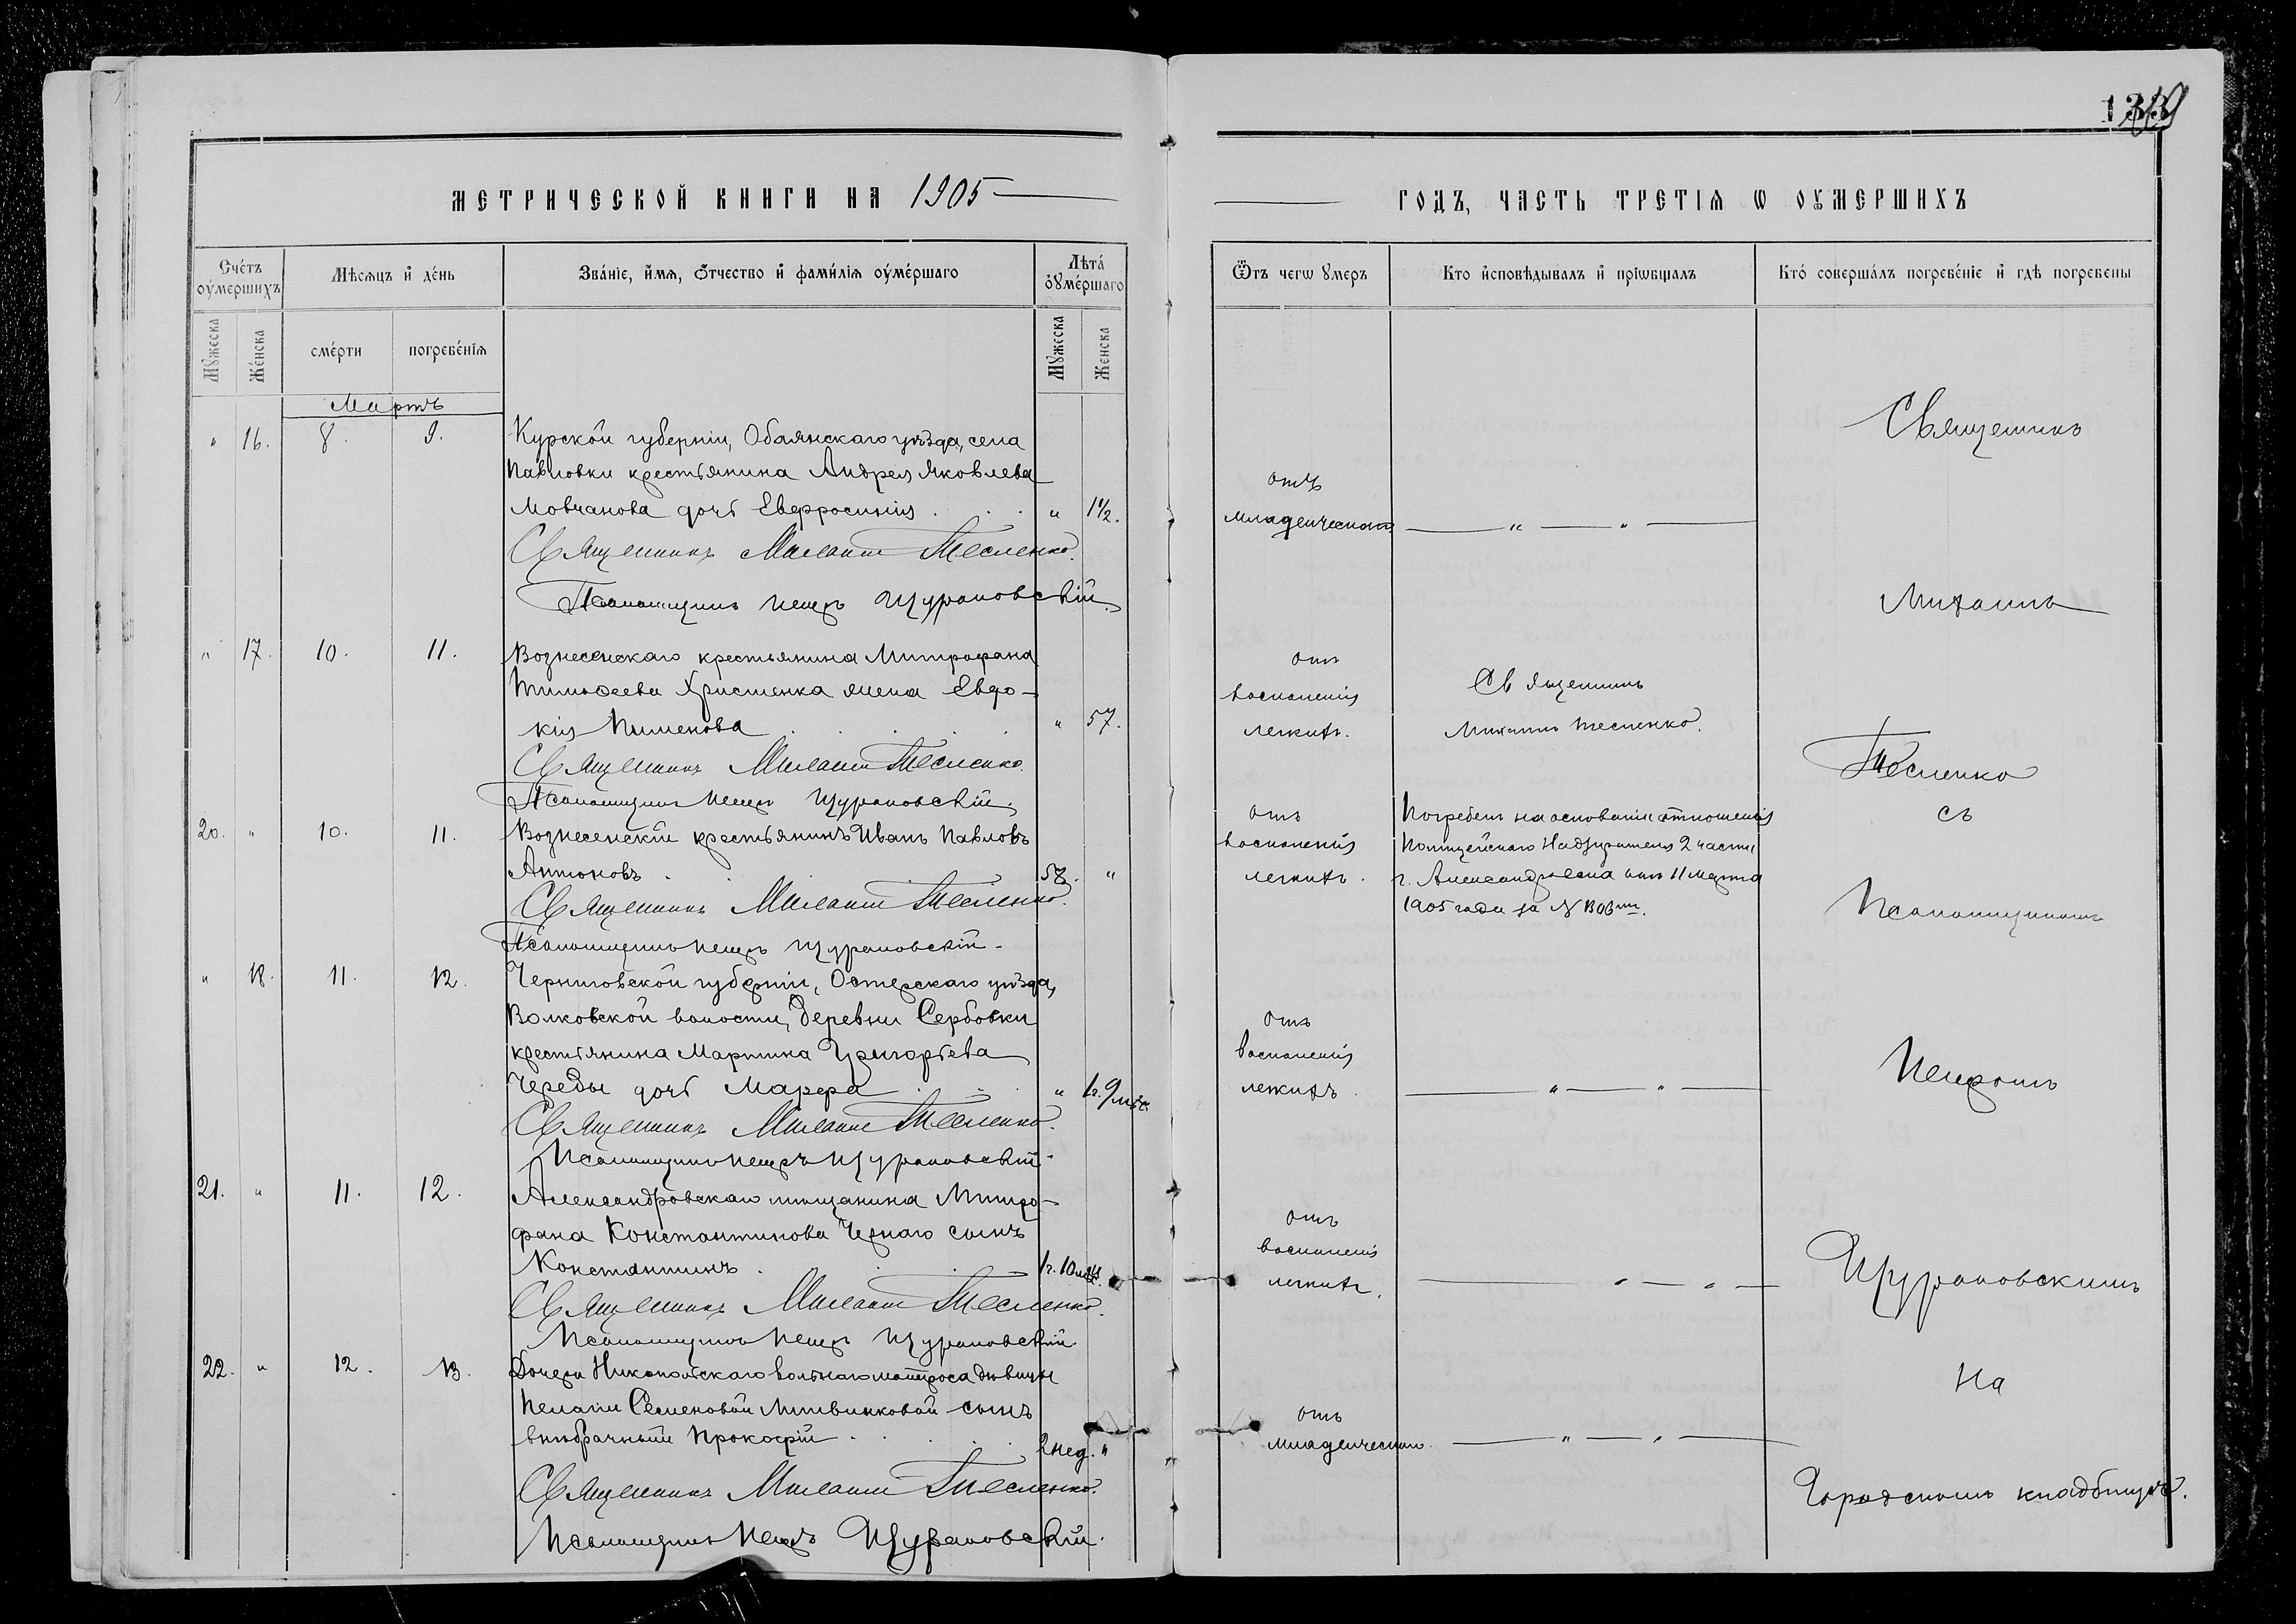 МЕТРИЧЕСКОЙ КНИГИ НА 1905
Счётъ оумершихъ
Мѣсяцъ и день
Званіе, имя, отчество и фамилія оумершаго
Лѣта оумершаго
Мужеска
Женска
смерти
погребенія
Мужеска
Женска
Мартъ
" 16. 8. 9. Курской губерніи, Обаянскаго уѣзда, села
Павловки крестьянина Андрея Яковлева
Мовчанова дочь Евфросинія " 1 1/2.
Священникъ Михаилъ Тесленко.
Псаломщикъ Петръ Щурановскій.
" 17. 10. 11. Вознесенскаго крестьянина Митрофана
Тимоѳеева Христенка жена Евдо-
кія Пименова " 57.
Священникъ Михаилъ Тесленко.
Псаломщикъ Петръ Щурановскій.
20. " 10. 11. Вознесенскій крестьянинъ Иванъ Павловъ
Антоновъ "
Священникъ Михаилъ Тесленко.
Псаломщикъ Петръ Щурановскій.
" 18. 11. 12. Черниговской губерніи, Остерскаго уѣзда,
Волковской волости, деревни Сербовки
крестьянина Мартина Григорьева
Череды дочь Марфа " 1г. 9 мѣс.
Священникъ Михаилъ Тесленко.
Псаломщикъ Петръ Щурановскій.
21. " 11. 12. Александровскаго мѣщанина Митро-
фана Константинова Чернаго сынъ
Константинъ 1г. 10 мѣс.
Священникъ Михаилъ Тесленко.
Псаломщикъ Петръ Щурановскій.
22. " 12. 13. Дочери Никопольскаго вольнаго матроса дѣвицы
Пелагіи Семеновой Литвинковой сынъ
внѣбрачный Прокофій 2 нед. "
Священникъ Михаилъ Тесленко.
Псаломщикъ Петръ Щурановскій.
ГОДЪ, ЧАСТЬ ТРЕТІЯ Ѡ ОУМЕРШИХЪ
Ѿтъ чегѡ умеръ
Кто исповѣдывалъ и пріѡбщалъ
Кто совершалъ погребеніе и гдѣ погребены
отъ
младенческой " "
отъ
воспаленія
легкихъ.
Священникъ
Михаилъ Тесленко.
отъ
воспаленія
легкихъ.
Погребенъ на основаніи отношенія
Полицейскаго Надзирателя 2 части
г. Александровска отъ 11 Марта
1905 года за №
отъ
воспаленія
легкихъ. " "
отъ
воспаленія
легкихъ. " "
отъ
младенческой. " "
Священникъ
Михаилъ
Тесленко
съ
Псаломщикомъ
Петромъ
Щурановскимъ
На
Городскомъ кладбищѣ.